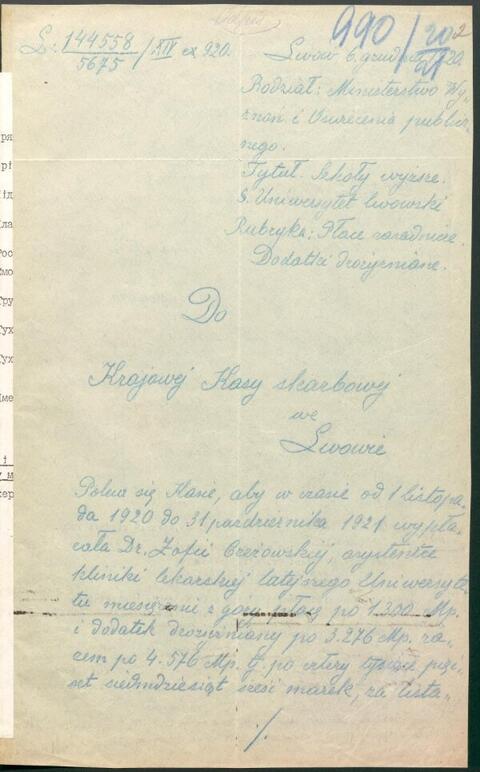 Odpis
990/20 2
21
L: 144558/XIV ex 920.
5675
Lwów 6. grudnia 1920.
Rodział: Ministerstwo Wy-
znań i Oświecenia publicz-
nego.
Tytuł. Szkoły wyższe.
§. Uniwersytet lwowski
Rubryka: Płace zasadnicze.
Dodatki drożyźniane.
Do
Krajowej Kasy skarbowej
we
Lwowie
Poleca się Kasie, aby w czasie od 1 listopa-
da 1920 do 31 października 1921 wypła-
cała Dr. Zofii Czeżowskiej, asystentce
kliniki lekarskiej tutejszego Uniwersyte-
tu miesięcznie z góry płacę po 1.300 Mp.
i dodatek drożyźniany po 3.276 Mp. ra-
zem po 4.576 Mp. tj. po cztery tysiące pięć-
set siedmdziesiąt sześć marek, za lista-
./.